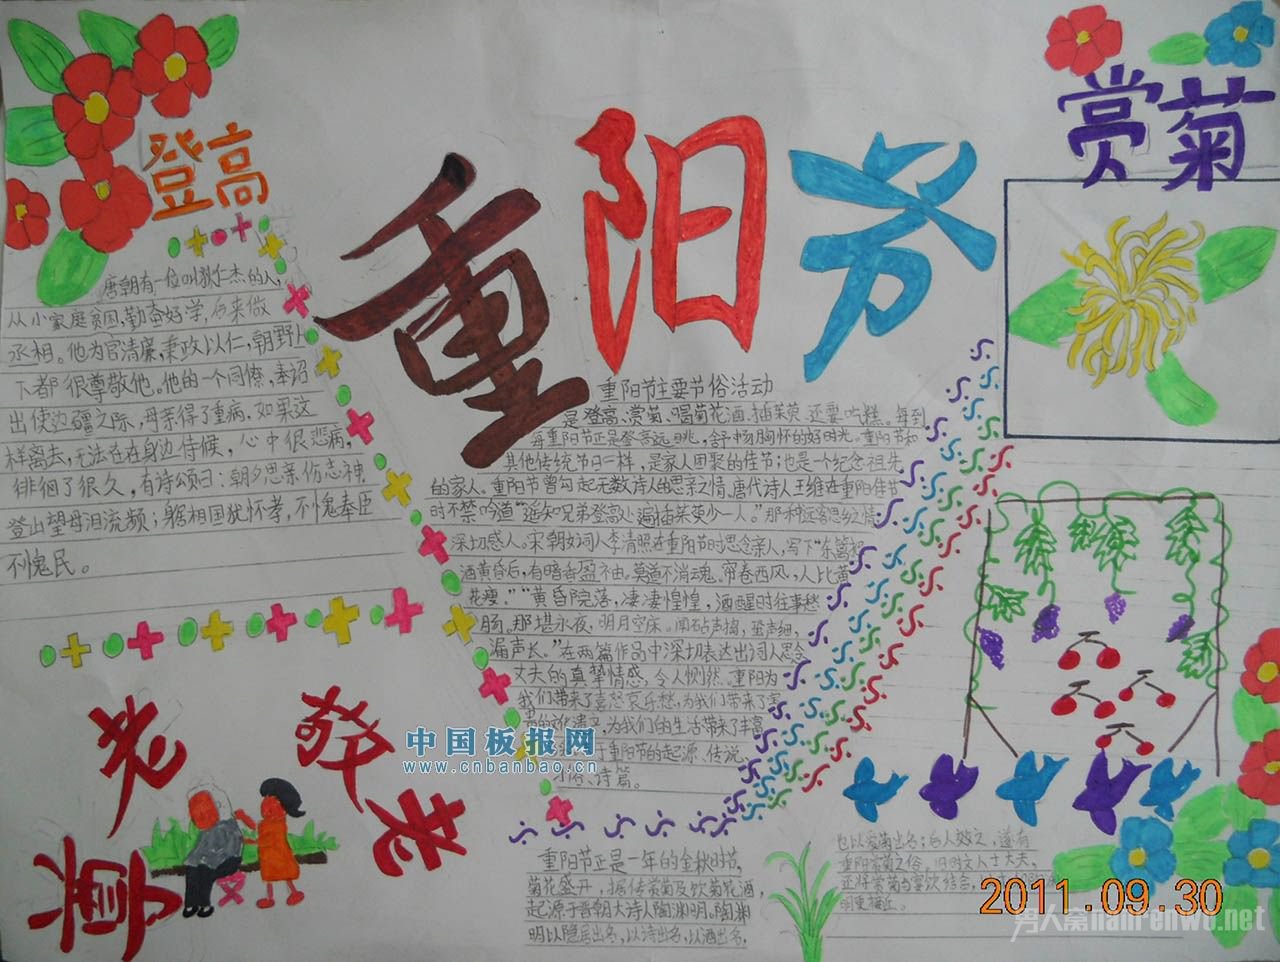 登高
重阳节
赏菊
唐朝有一位叫狄仁杰的人,
从小家庭贫困,勤奋好学,后来做
丞相。他为官清廉,秉政以仁,朝野上
下都很尊敬他。他的一个同僚,奉诏
出使边疆之际,母亲得了重病,如果这
样离去,无法在在身边侍候,心中很悲痛,
徘徊了很久,有诗颂曰:朝夕思亲伤志神,
登山望母泪流频;身居相国犹怀孝,不愧奉臣
不愧民。
重阳节主要节俗活动
是登高、赏菊、喝菊花酒、插茱萸、还要吃糕。每到
每重阳节正是登高远眺,舒畅胸怀的好时光。重阳节和
其他传统节日一样,是家人团聚的佳节;也是一个纪念祖先
的家人。重阳节曾勾起无数诗人的思亲之情。唐代诗人王维在重阳佳节
时不禁吟道“遥知兄弟登高处,遍插茱萸少一人。”那种远客思乡之情
深切感人。宋朝女词人李清照在重阳节时思念亲人,写下“东篱把
酒黄昏后,有暗香盈袖。莫道不消魂。帘卷西风,人比黄
花瘦。”“黄昏院落,凄凄惶惶,酒醒时往事愁
肠。那堪永夜,明月空床。闻砧声捣,蛩声细,
漏声长。”在两篇作品中深切表达出词人思念
丈夫的真挚情感,令人恻然。重阳为
我们带来了喜怒哀乐愁,为我们带来了
为我们的生活带来了丰富
重阳节的起源、传说、
诗篇。
老 敬老
中国板报网
www.cnbanbao.cn
重阳节正是一年的金秋时节,
菊花盛开,据传赏菊及饮菊花酒,
起源于晋朝大诗人陶渊明。陶渊
明以隐居出名,以诗出名,以酒出名,
也以爱菊出名;后人效之,遂有
重阳赏菊之俗。旧时文人士大夫,
还将赏菊与宴饮结合,
明更接近。
2011.09.30
男人窝nanrenwo.net